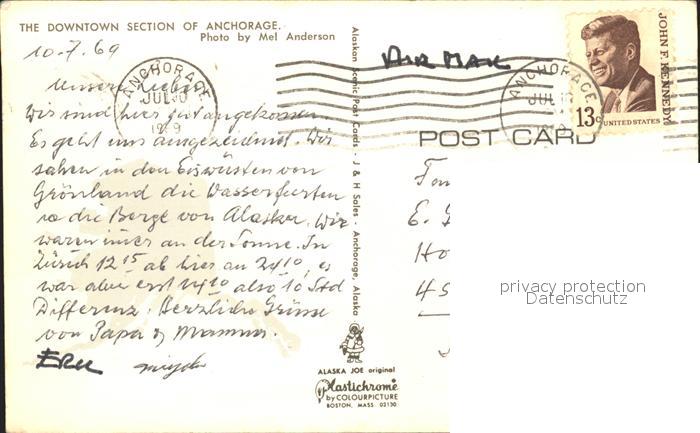 THE DOWNTOWN SECTION OF ANCHORAGE.
Photo by Mel Anderson
10-7.69
Unsere Lieben
Wir sind hier gut angekommen.
Es geht uns ausgezeichnet. Wir
sahen in den Eiswüsten von
Grönland die Wasserfurten
die Berge von Alaska. Wir
waren immer an der Sonne. In
Zürich 12 15 ab hier an 24 10, es
war aber erst 14 10 also 10 Std
Differenz. Herzliche Grüsse
von Papa & Mamma.
Alaskan Scenic Post Cards - J & H Sales - Anchorage, Alaska
ALASKA JOE original
Plastichrome
by COLOURPICTURE
BOSTON, MASS. 02130
AIR MAIL
ANCHORAGE
JUL
ANCHORAGE
JUL
JOHN F. KENNEDY
13c UNITED STATES
POST CARD
E.
Ho
45
privacy protection
Datenschutz